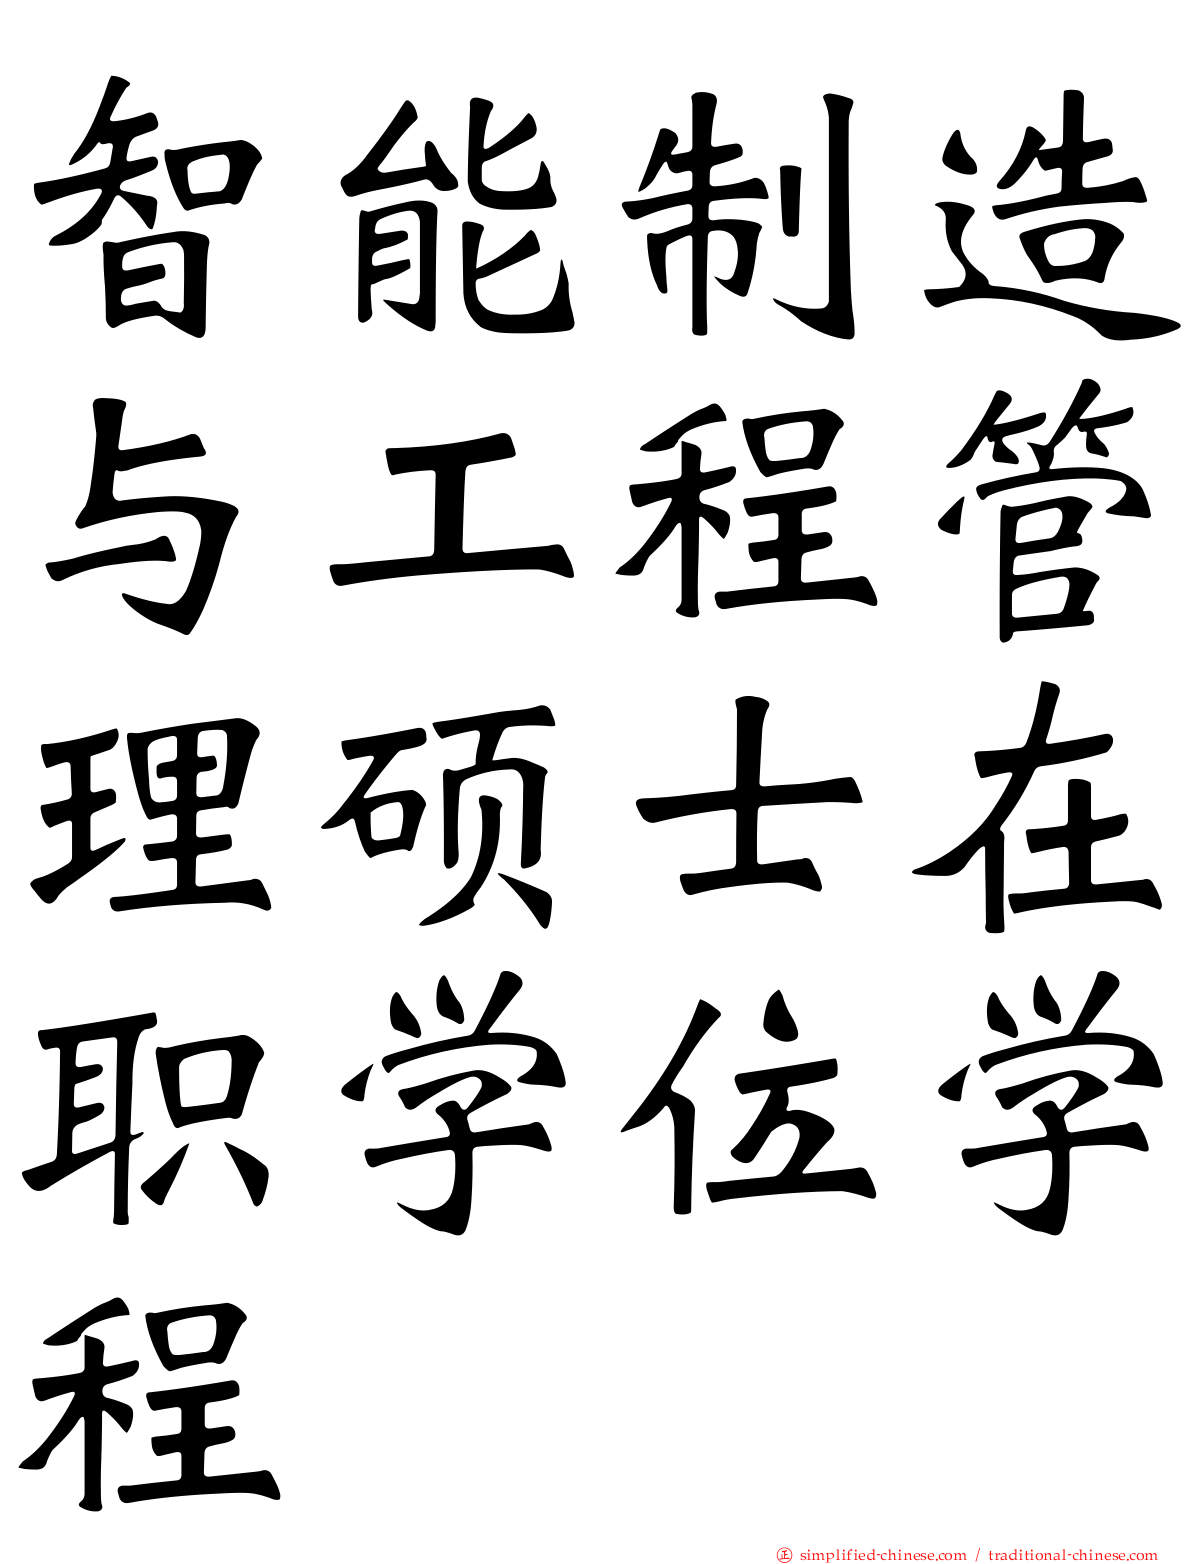 智能制造
与工程管
理硕士在
职学位学
程
正 simplified-chinese.com / traditional-chinese.com